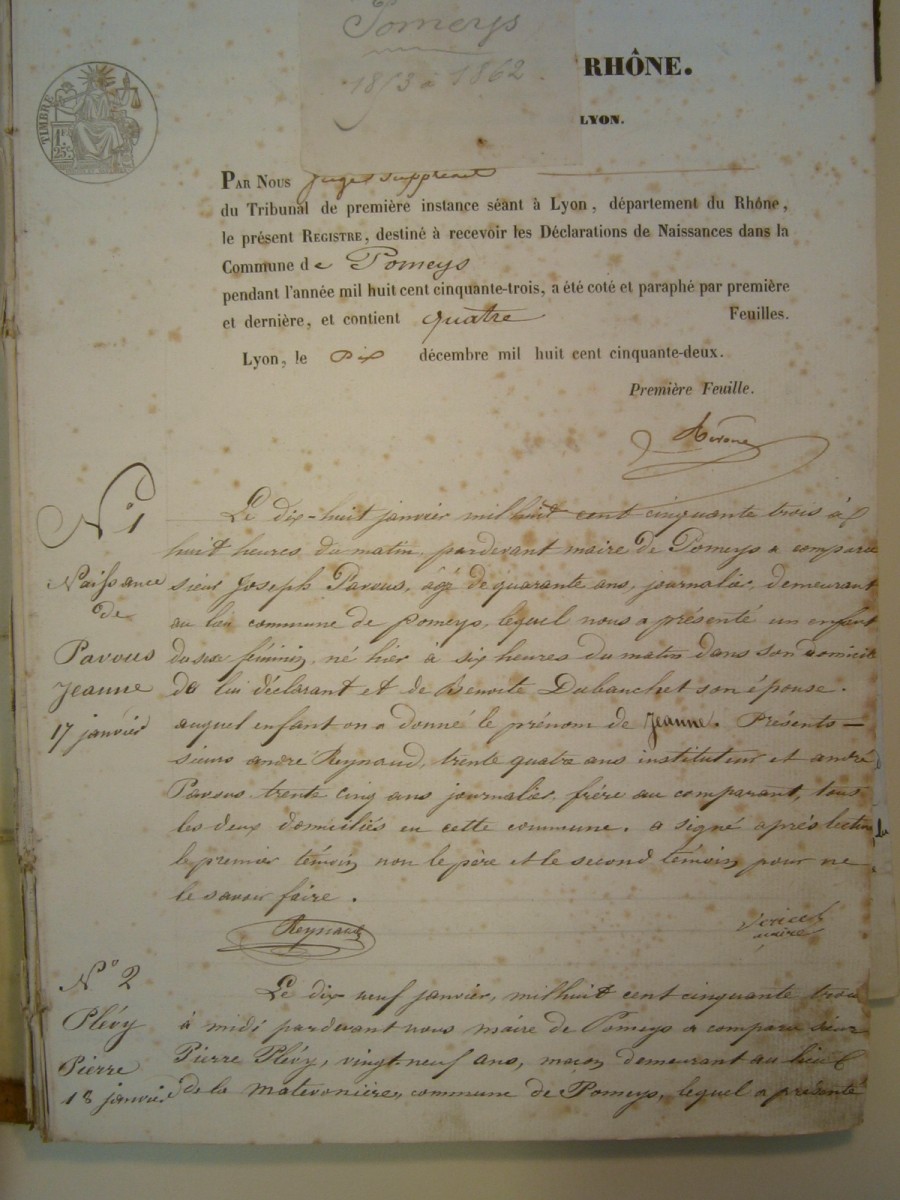 Pomeys
1853 à 1862
RHÔNE.
LYON.
TIMBRE
1F.
25c
PAR NOUS Juge suppléant
du Tribunal de première instance séant à Lyon, département du Rhône,
le présent REGISTRE, destiné à recevoir les Déclarations de Naissances dans la
Commune de Pomeys
pendant l'année mil huit cent cinquante-trois, a été coté et paraphé par première
et dernière, et contient quatre Feuilles.
Lyon, le Dix décembre mil huit cent cinquante-deux.
Première Feuille.
N° 1
Naissance
de
Pavous
Jeanne
17 janvier
Le dix-huit janvier mil huit cent cinquante trois à
huit heures du matin, pardevant maire de Pomeys a comparu
sieur Joseph Pavous, âgé de quarante ans, journalier, demeurant
au commune de pomeys, lequel nous a présenté un enfant
du sexe féminin, né hier à six heures du matin dans son domicile
de lui déclarant et de Benoite Dubanchet son épouse.
auquel enfant on a donné le prénom de Jeanne. Présents
sieurs andré Reynaud, trente quatre ans instituteur et andré
Pavous trente cinq ans journalier, frère au comparant, tous
les deux domiciliés en cette commune. a signé après lecture
le premier témoin non le père et le second témoin pour ne
le savoir faire.
Reynaud
maire
N° 2
Plévy
Pierre
18 janvier
Le dix neuf janvier, mil huit cent cinquante trois
à midi pardevant nous maire de Pomeys a comparu sieur
Pierre Plévy, vingt-neuf ans, maçon demeurant au lieu
de la Matevonière, commune de Pomeys, lequel a présenté